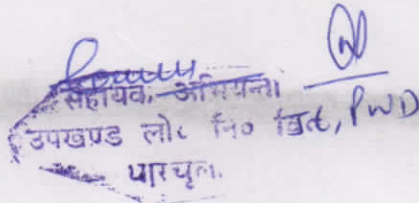 सहायक अभियन्ता
उपखण्ड लो० नि० वि०, PWD
धारचूला